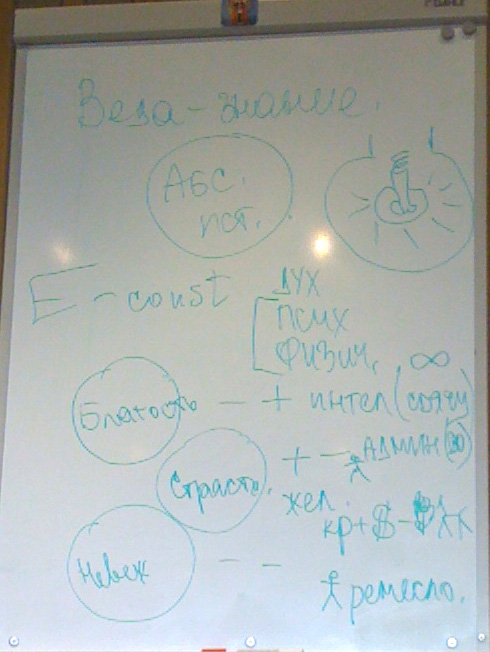 Веда - знание.
АБС.
ист.
E - const
ДУХ
ПСИХ
ФИЗИЧ, ∞
Благость - + интел (
Страсть, + - АДМИН (30)
жел.
кр+
Невеж - -
ремесло.